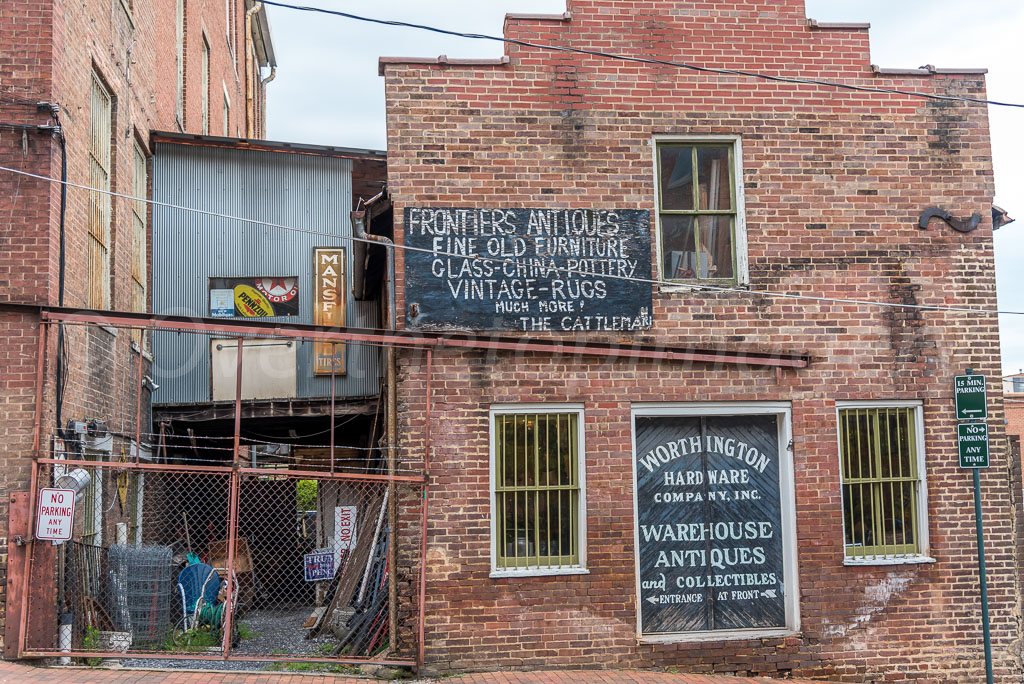 FRONTIERS ANTIQUES
FINE OLD FURNITURE
GLASS-CHINA-POTTERY
VINTAGE-RUGS
MUCH MORE!
THE CATTLEMAN
PENNZOIL
MOTOR OIL
MANSFI
TIRES
15 MIN.
PARKING
NO
PARKING
ANY
TIME
WORTHINGTON
HARDWARE
COMPANY, INC.
WAREHOUSE
ANTIQUES
and COLLECTIBLES
ENTRANCE AT FRONT
NO
PARKING
ANY
TIME
NO EXIT
TRUMP
PENCE